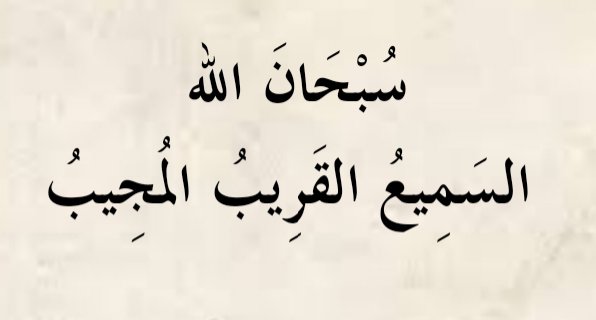 سُبْحَانَ الله
السَمِيعُ القَرِيبُ المُجِيبُ